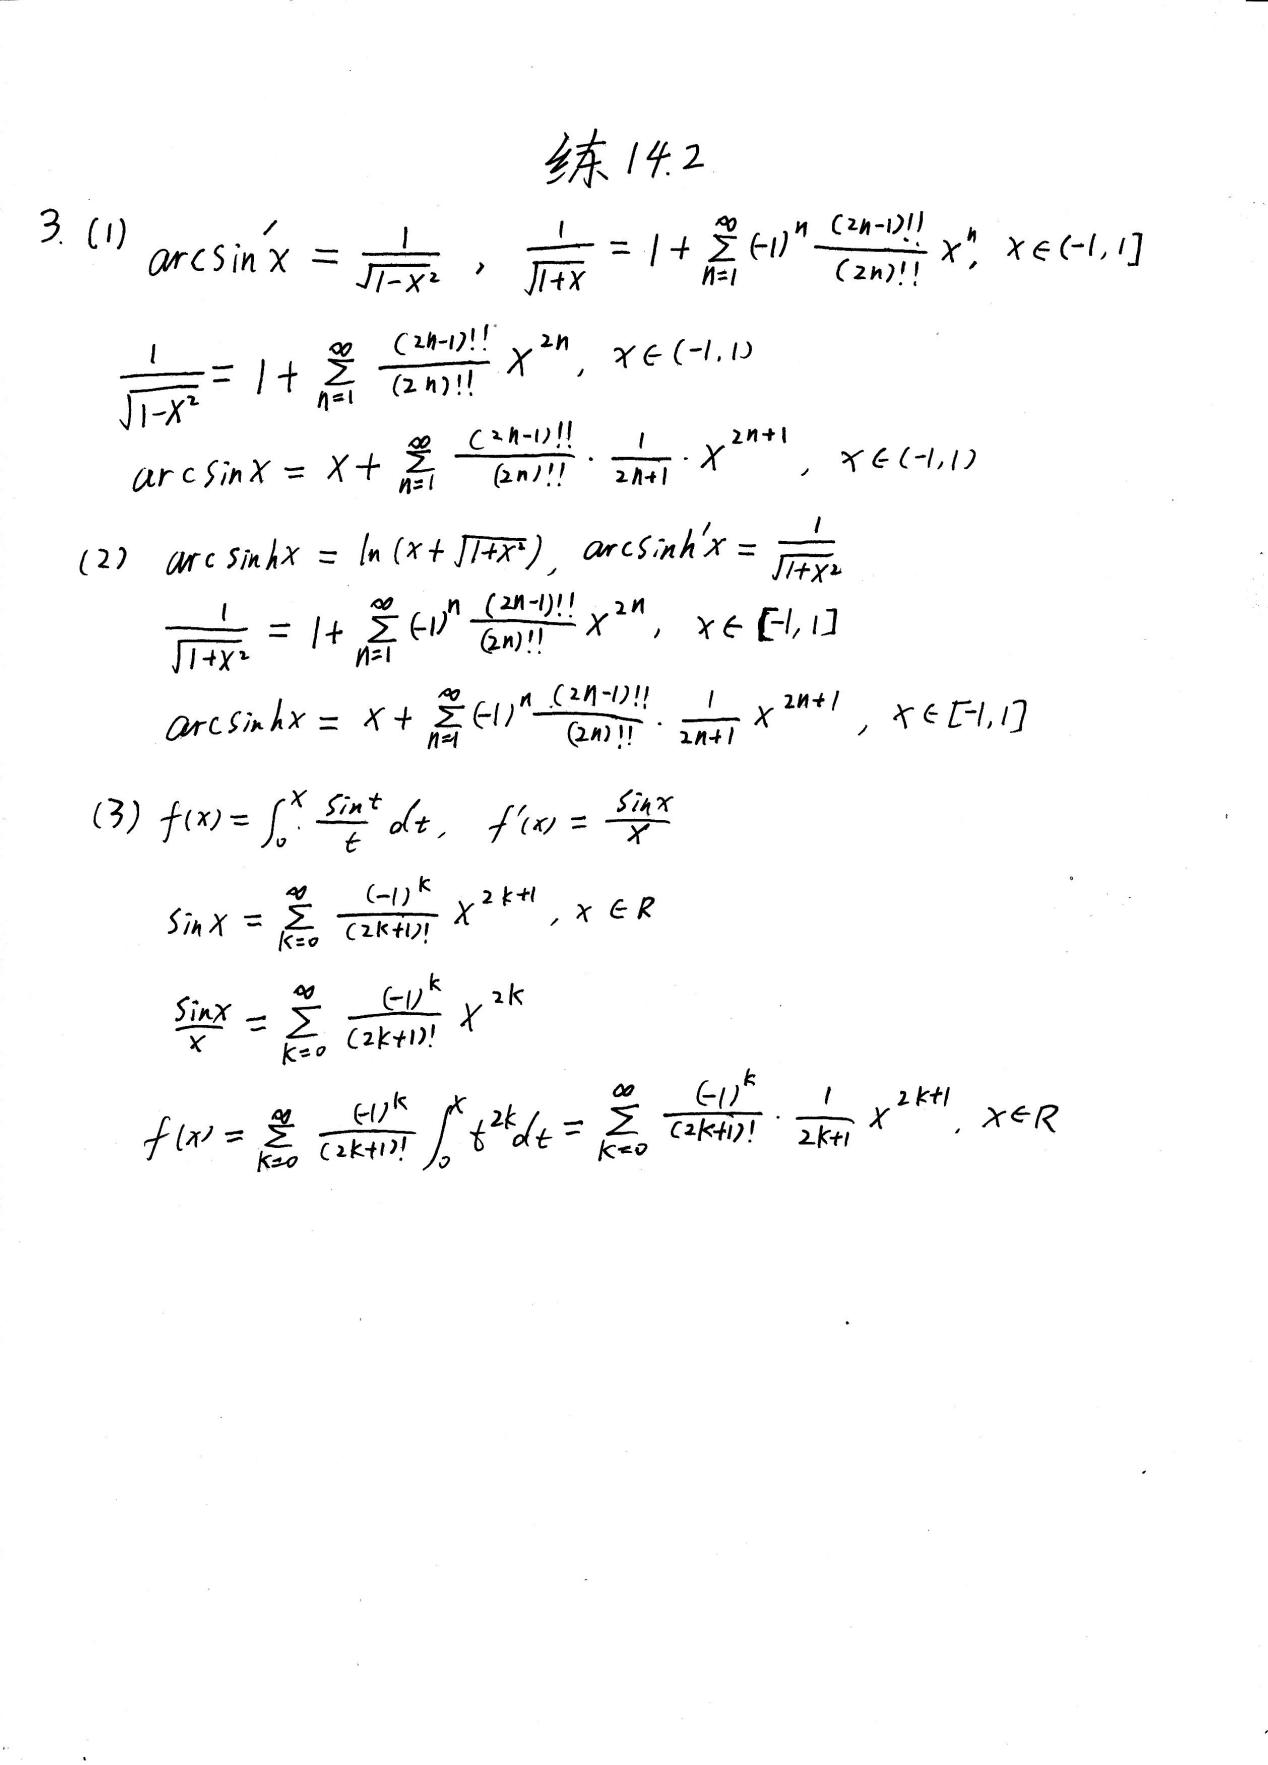 练 14.2
3. (1) arcsin'x = \frac{1}{\sqrt{1-x^2}}, \frac{1}{\sqrt{1+x}} = 1 + \sum_{n=1}^{\infty} (-1)^n \frac{(2n-1)!!}{(2n)!!} x^n, x ∈ (-1, 1]
\frac{1}{\sqrt{1-x^2}} = 1 + \sum_{n=1}^{\infty} \frac{(2n-1)!!}{(2n)!!} x^{2n}, x ∈ (-1, 1)
arcsinx = x + \sum_{n=1}^{\infty} \frac{(2n-1)!!}{(2n)!!} · \frac{1}{2n+1} · x^{2n+1}, x ∈ (-1, 1)
(2) arcsinhx = ln(x + \sqrt{1+x^2}), arcsinh'x = \frac{1}{\sqrt{1+x^2}}
\frac{1}{\sqrt{1+x^2}} = 1 + \sum_{n=1}^{\infty} (-1)^n \frac{(2n-1)!!}{(2n)!!} x^{2n}, x ∈ [-1, 1]
arcsinhx = x + \sum_{n=1}^{\infty} (-1)^n \frac{(2n-1)!!}{(2n)!!} · \frac{1}{2n+1} x^{2n+1}, x ∈ [-1, 1]
(3) f(x) = \int_0^x \frac{sint}{t} dt, f'(x) = \frac{sinx}{x}
sinx = \sum_{k=0}^{\infty} \frac{(-1)^k}{(2k+1)!} x^{2k+1}, x ∈ R
\frac{sinx}{x} = \sum_{k=0}^{\infty} \frac{(-1)^k}{(2k+1)!} x^{2k}
f(x) = \sum_{k=0}^{\infty} \frac{(-1)^k}{(2k+1)!} \int_0^x t^{2k} dt = \sum_{k=0}^{\infty} \frac{(-1)^k}{(2k+1)!} · \frac{1}{2k+1} x^{2k+1}, x ∈ R